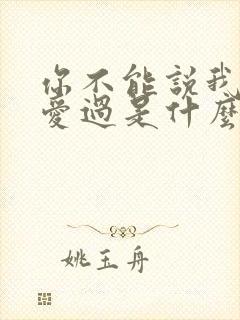 你不能說我
愛過是什麼
姚玉舟